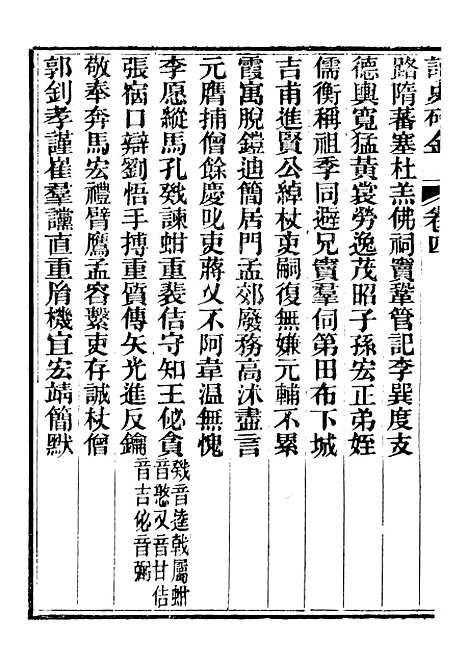 卷四
路隋蕃塞杜羔佛祠竇鞏管記李巽度支
德輿寬猛黃裳勞逸茂昭子孫宏正弟姪
儒衡稱祖季同避兄竇羣伺第田布下城
吉甫進賢公綽杖吏嗣復無嫌元輔不累
霞寓脫鎧迪簡居門孟郊廢務高沐盡言
元膺捕僧餘慶叱吏蔣乂不阿韋溫無愧
李愿縱馬孔戣諫蚶重裴佶守知王佖貪
戣音逵戟屬蚶
音憨乂音甘佶
音吉佖音弼
張宿口辯劉悟手搏重質傳矢光進反鑰
敬奉奔馬宏禮臂鷹孟容繫吏存誠杖僧
郭釗孝謹崔羣讜直重胤機宜宏靖簡默